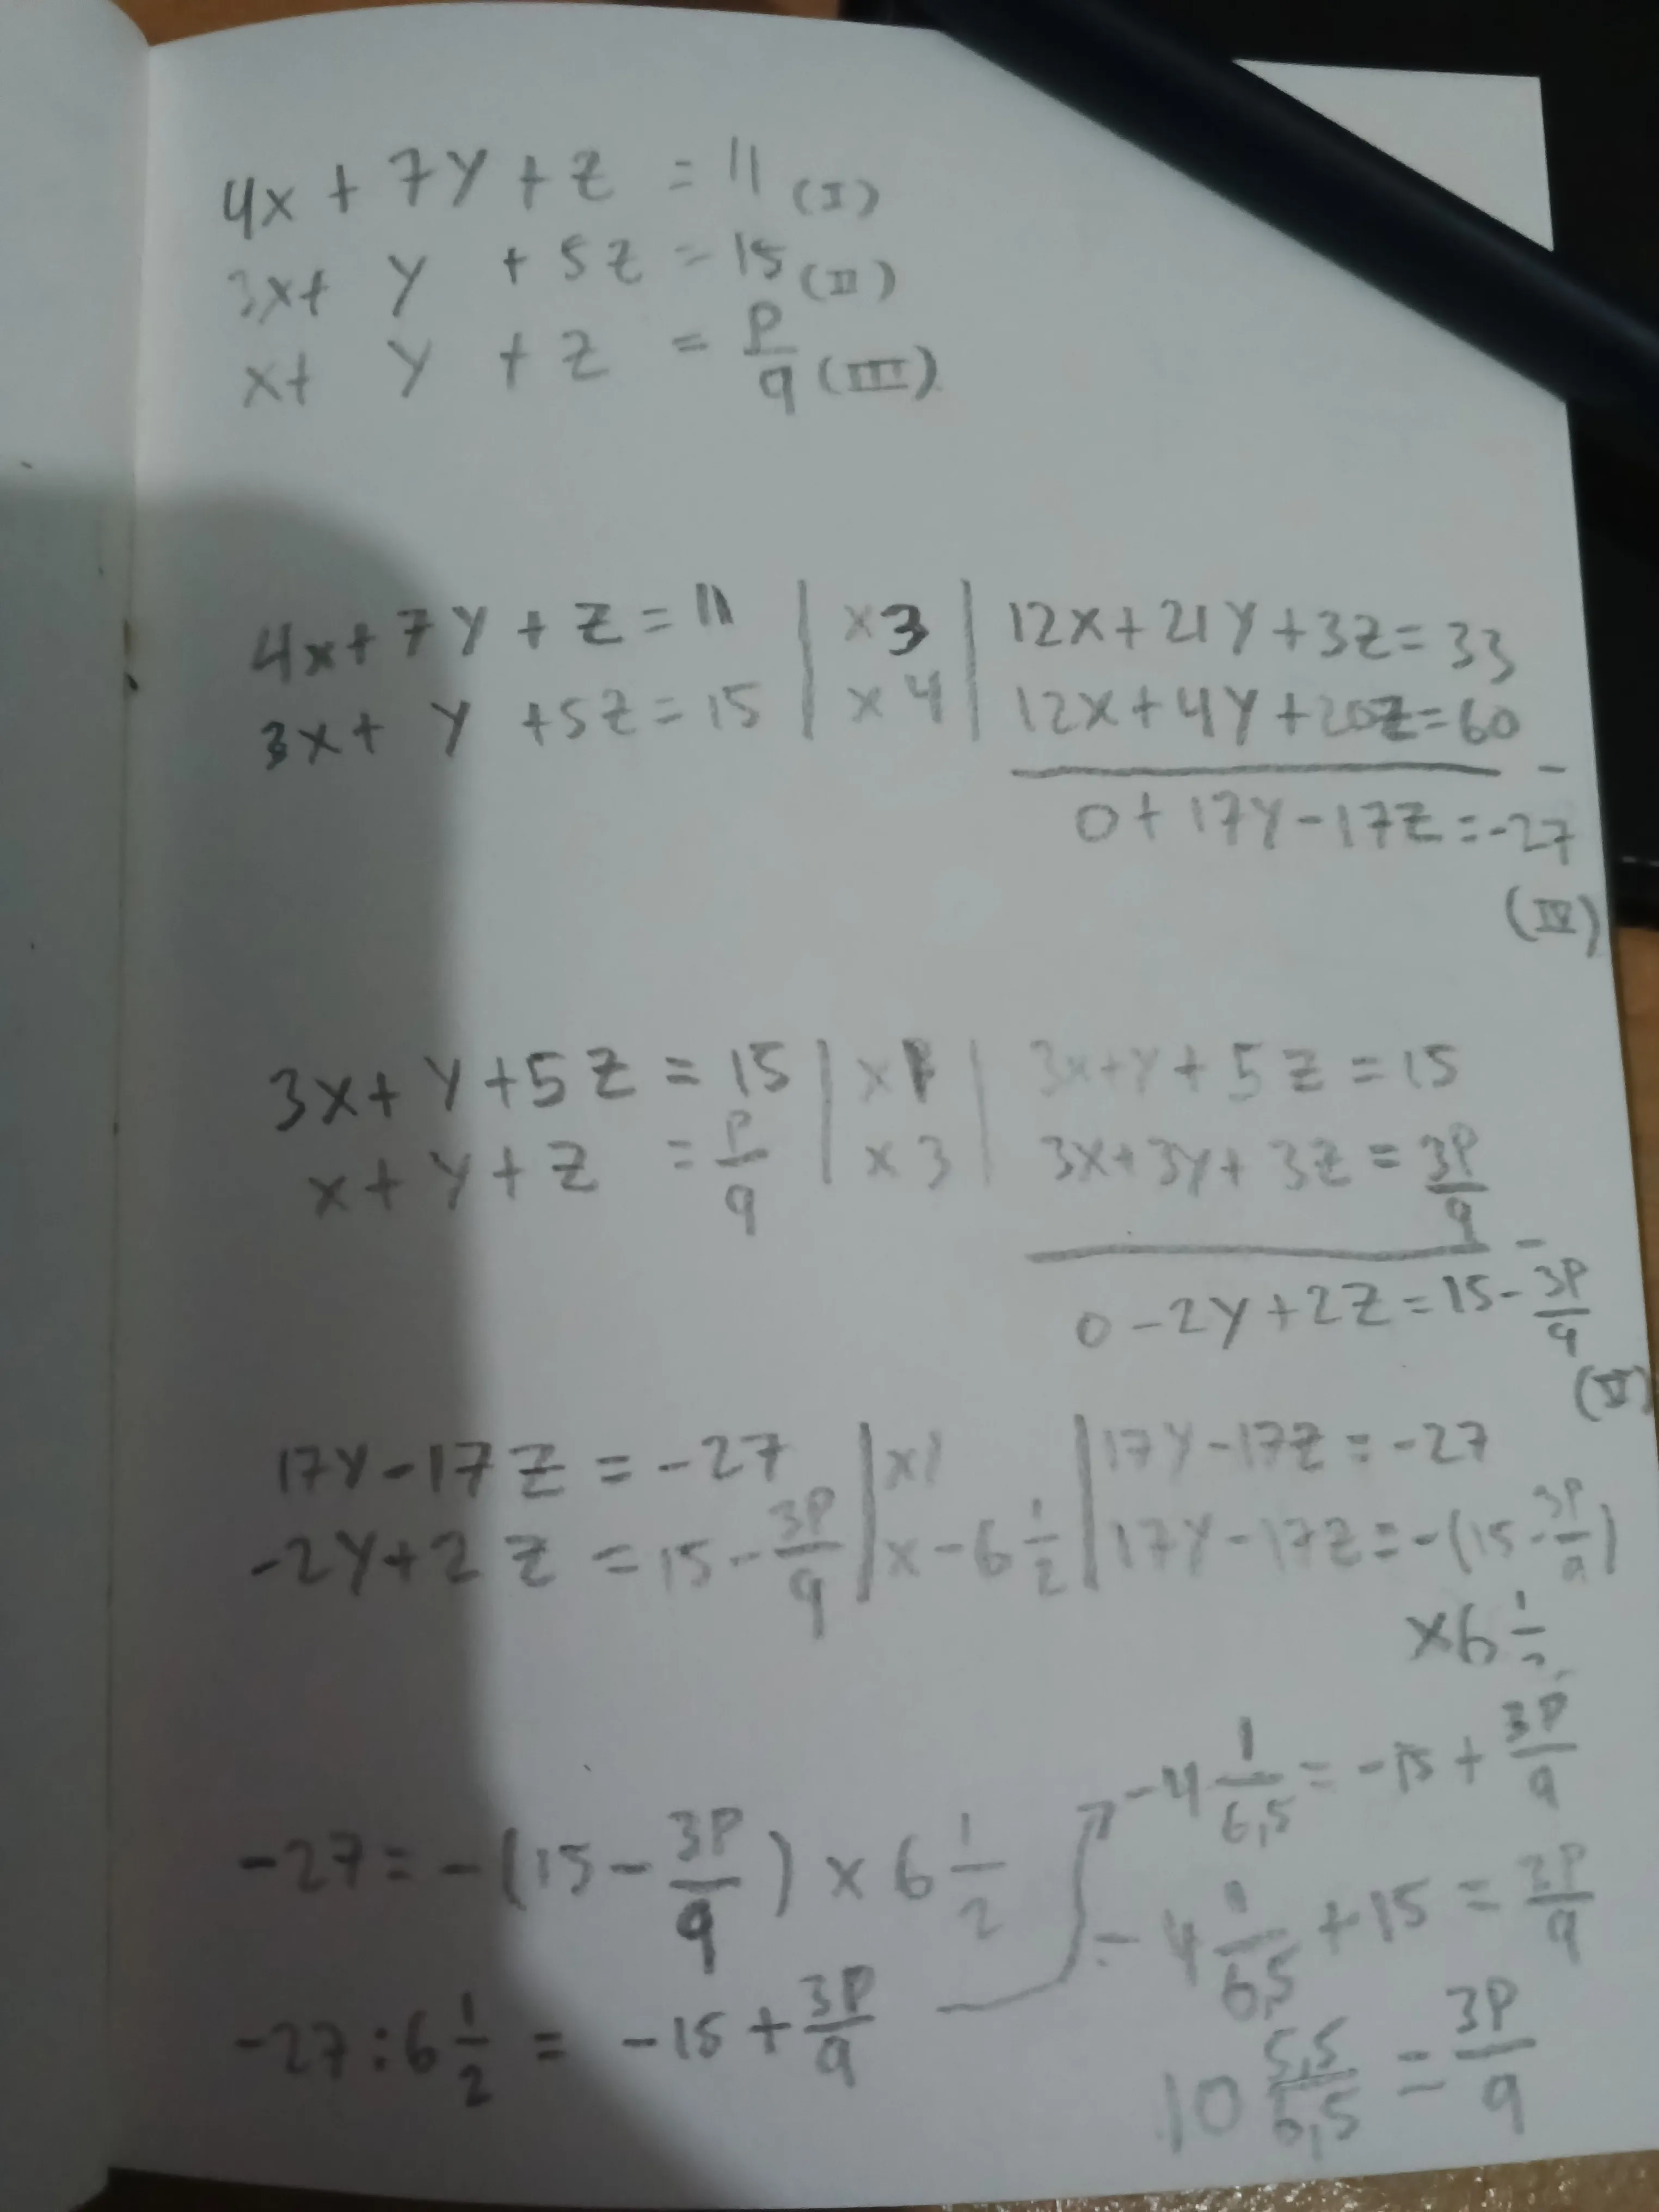 4x + 7y + z = 11 (I)
3x + y + 5z = 15 (II)
x + y + z = p/q (III)
4x + 7y + z = 11 | x 3 | 12x + 21y + 3z = 33
3x + y + 5z = 15 | x 4 | 12x + 4y + 20z = 60
0 + 17y - 17z = -27
(IV)
3x + y + 5z = 15 | x 1 | 3x + y + 5z = 15
x + y + z = p/q | x 3 | 3x + 3y + 3z = 3p/q
0 - 2y + 2z = 15 - 3p/q
(V)
17y - 17z = -27 | x 1 | 17y - 17z = -27
-2y + 2z = 15 - 3p/q | x - 6 1/2 | 17y - 17z = -(15 - 3p/q)
x 6 1/2
-27 = -(15 - 3p/q) x 6 1/2
-27 : 6 1/2 = -15 + 3p/q
-4 1/6,5 = -15 + 3p/q
-4 1/6,5 + 15 = 3p/q
10 5,5/6,5 = 3p/q